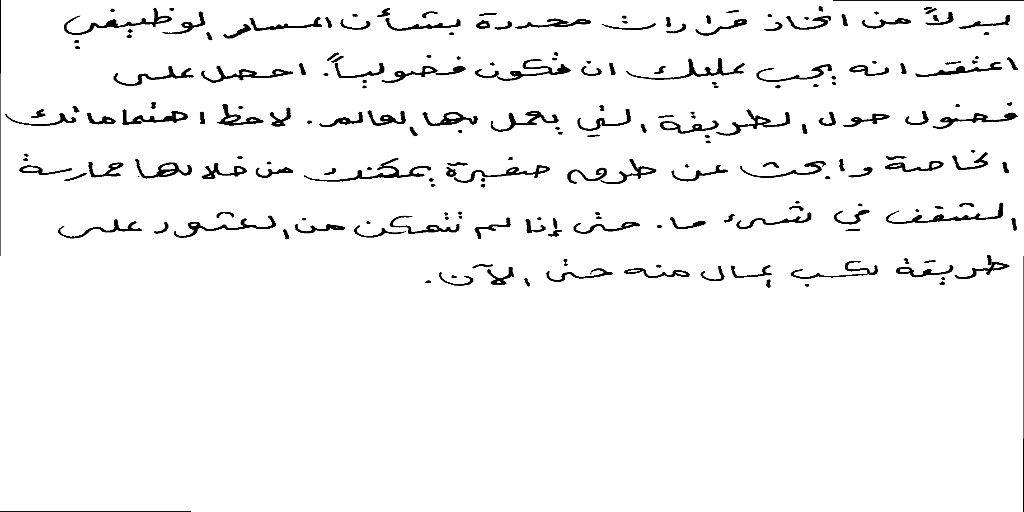 بدلاً من اتخاذ قرارات محددة بشأن المسار الوظيفي
اعتقد انه يجب عليك ان تكون فضولياً. احصل على
فضول حول الطريقة التي يعمل بها العالم. لاحظ اهتماماتك
الخاصة وابحث عن طرق صغيرة يمكنك من خلالها ممارسة
الشغف في شيء ما. حتى إذا لم تتمكن من العثور على
طريقة لكسب المال منه حتى الآن.